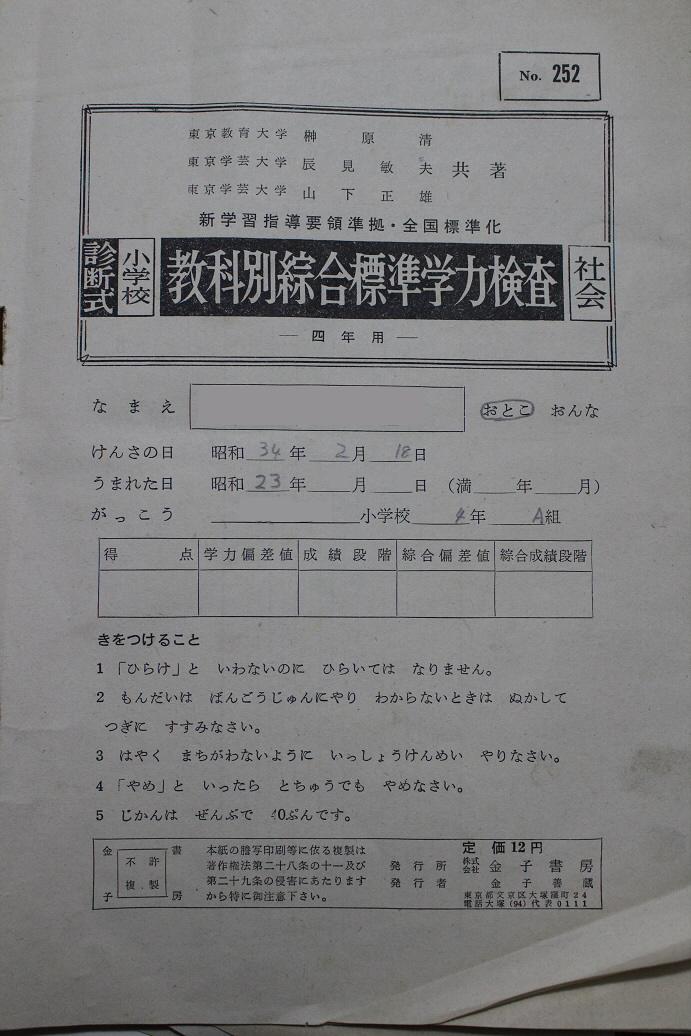 No. 252
東京教育大学 榊原清
東京学芸大学 辰見敏夫 共著
東京学芸大学 山下正雄
新学習指導要領準拠・全国標準化
診断式 小学校 教科別綜合標準学力検査 社会
― 四年用 ―
なまえ おとこ おんな
けんさの日 昭和 34 年 2 月 18 日
うまれた日 昭和 23 年 月 日 (満 年 月)
がっこう 小学校 4 年 A 組
得点 学力偏差値 成績段階 綜合偏差値 綜合成績段階
きをつけること
1 「ひらけ」と いわないのに ひらいては なりません。
2 もんだいは ばんごうじゅんにやり わからないときは ぬかして
つぎに すすみなさい。
3 はやく まちがわないように いっしょうけんめい やりなさい。
4 「やめ」と いったら とちゅうでも やめなさい。
5 じかんは ぜんぶで 40ぷんです。
金子書房 不許複製
本紙の謄写印刷等に依る複製は
著作権法第二十八条の十一及び
第二十九条の侵害にあたります
から特に御注意下さい。
定価12円
発行所 株式会社 金子書房
発行者 金子善蔵
東京都文京区大塚窪町24
電話大塚(94)代表0111